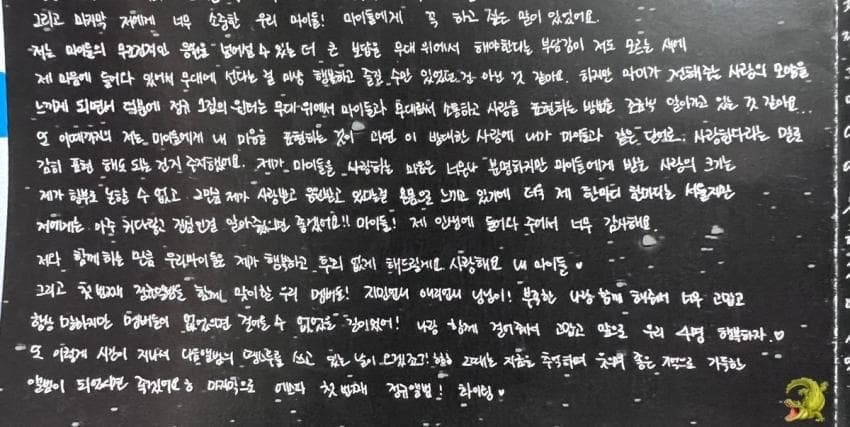 그리고 마지막 저에게 너무 소중한 우리 마이들! 마이들에게 꼭 하고 싶은 말이 있었어요.
저는 마이들의 무조건적인 응원을 넘어설 수 있는 더 큰 보답을 무대 위에서 해야한다는 부담감이 저도 모르는 새에
제 마음에 들어와 있어서 무대에 선다는 걸 마냥 행복하고 즐길 수만 있었던 건 아닌 것 같아요. 하지만 마이가 전해주는 사랑의 모양을
느끼게 되면서 덕분에 정규 1집의 윈터는 무대 위에서 마이들과 무대로써 소통하고 사랑을 표현하는 방법을 조금씩 알아가고 있는 것 같아요..
또 이때까지의 저는 마이들에게 내 마음을 표현하는 것이 과연 이 방대한 사랑에 내가 마이들과 같은 단어로, 사랑한다라는 말로
감히 표현 해도 되는 건지 주저했었어요. 제가 마이들을 사랑하는 마음은 너무나 분명하지만 마이들에게 받는 사랑의 크기는
제가 함부로 논할 수 없고 그만큼 제가 사랑받고 응원받고 있다는걸 온몸으로 느끼고 있기에 더욱 제 한마디 한마디는 서툴지만
저에게는 아주 커다랗고 진심인걸 알아줬으면 좋겠어요!! 마이들! 제 인생에 들어와 주어서 너무 감사해요.
저와 함께하는 만큼 우리마이들은 제가 행복하고 후회 없게 해드릴게요. 사랑해요 내 마이들 ♥
그리고 첫 번째 정규앨범을 함께 맞이할 우리 멤버들! 지민언니 애리언니 닝닝이! 부족한 나랑 함께 해줘서 너무 고맙고
항상 말하지만 멤버들이 없었으면 걸어올 수 없었을 길이었어! 나랑 함께 걸어줘서 고맙고 앞으로 우리 4명 행복하자 ♡
또 이렇게 시간이 지나서 다음앨범의 땡스투를 쓰고 있는 날이 오겠죠?! 그때는 지금을 추억하며 웃으며 좋은 기억으로 가득한
앨범이 되었으면 좋겠어요 ㅎ 마지막으로 에스파 첫 번째 정규앨범! 화이팅 ♥